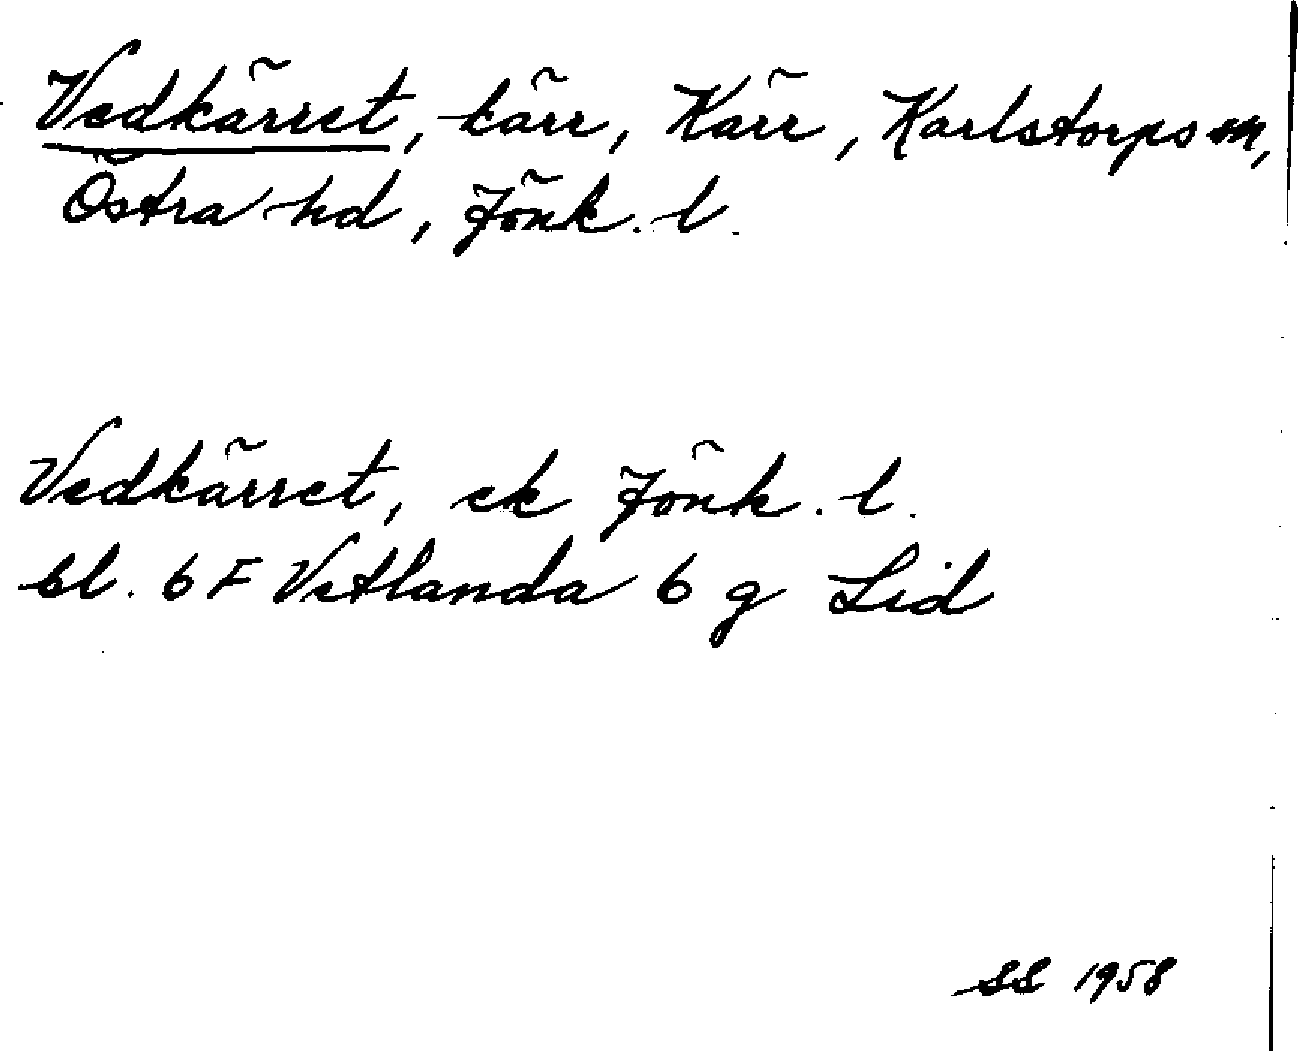 Vedkärret, kärr, Kärr, Karlstorps sn,
Östra hd, Jönk. l.
Vedkärret, ek Jönk. l.
bl. 6 F Vetlanda 6 g Lid
SS 1958